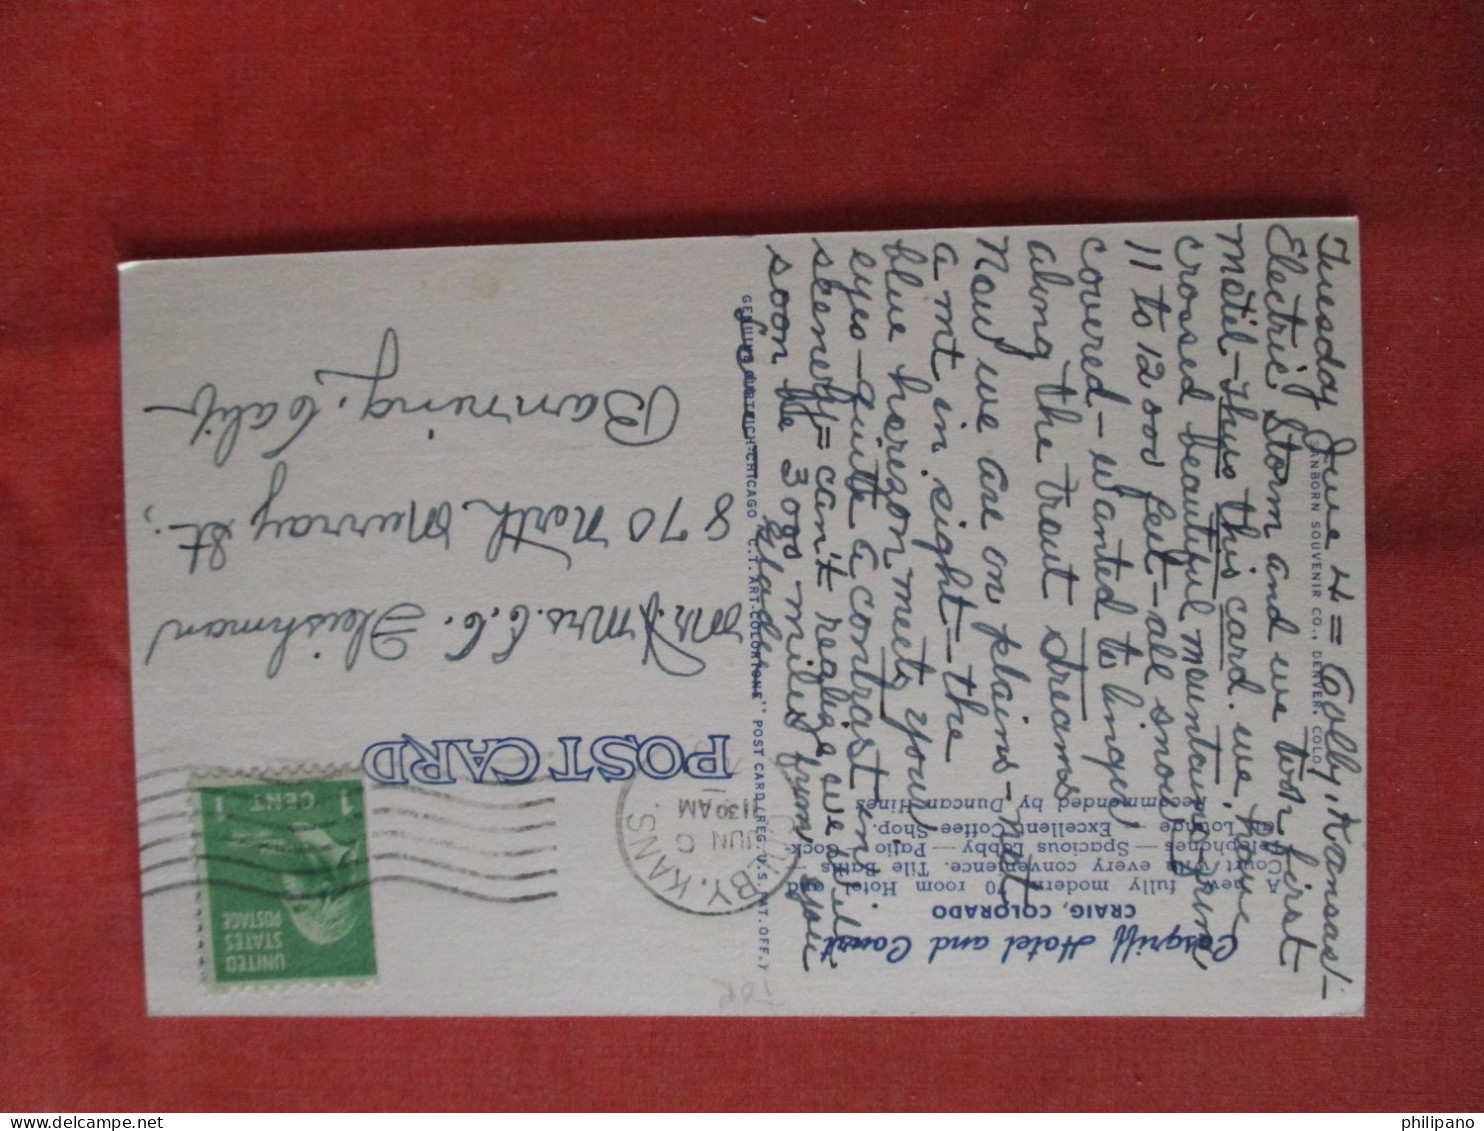 Tuesday June 4 = Colby, Kansas! -
Electric Storm and we took first
motel - Thus this card. We have
crossed beautiful mountains from
11 to 12 000 feet - all snow
covered - wanted to linger
along the trout streams
Now we are on plains - not
a mt in sight - the
blue horezon meets your
eyes - quite a contrast in
skenery = can't realize we will
soon be 3000 miles from you
Casgriff Hotel and Court
CRAIG, COLORADO
A new, fully modern, 70 room Hotel and
Court with every convenience. Tile Baths
Telephones — Spacious Lobby — Patio — Cock-
tail Lounge Excellent Coffee Shop.
Recommended by Duncan Hines
SANBORN SOUVENIR CO., DENVER, COLO.
GENUINE CURTEICH-CHICAGO "C.T. ART-COLORTONE" POST CARD (REG. U.S. PAT. OFF.)
POST CARD
COLBY. KANS
JUN
1130 AM
1 CENT 1
UNITED
STATES
POSTAGE
Mr & Mrs. C. C. Fleishman
870 North Murray St.,
Banning, Calif
FOR
philipano